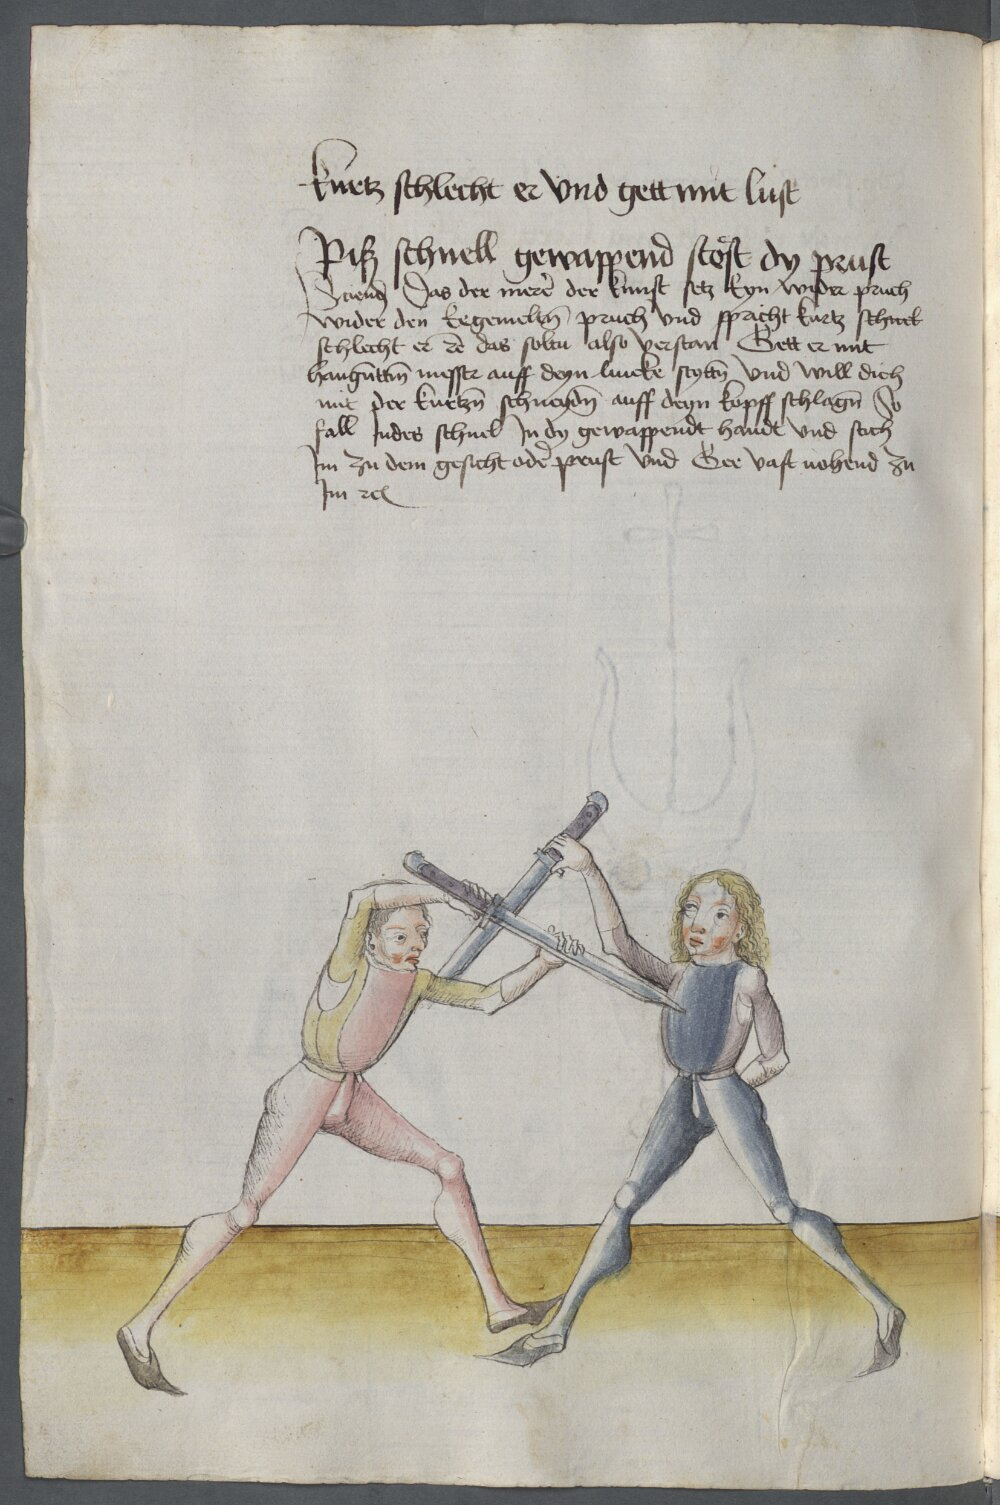 kurtz schlecht er vnd gett mit lust
Piß schnell gewappend stöst dy prust
Das der merer der kunst setz eyn wyder pruch
wider den pruch vnd spricht kurtz schnel
schlecht er rc das soltu also verstan Gett er mit
messer auff deyn lincke seyttn vnd will dich
mit der kurtzn schneydn auff deyn kopff schlagn So
fall Indes schnel In dy gewappendt handt vnd stich
Im zu dem gesicht oder prust vnd Gee vast nohend zu
Im rc